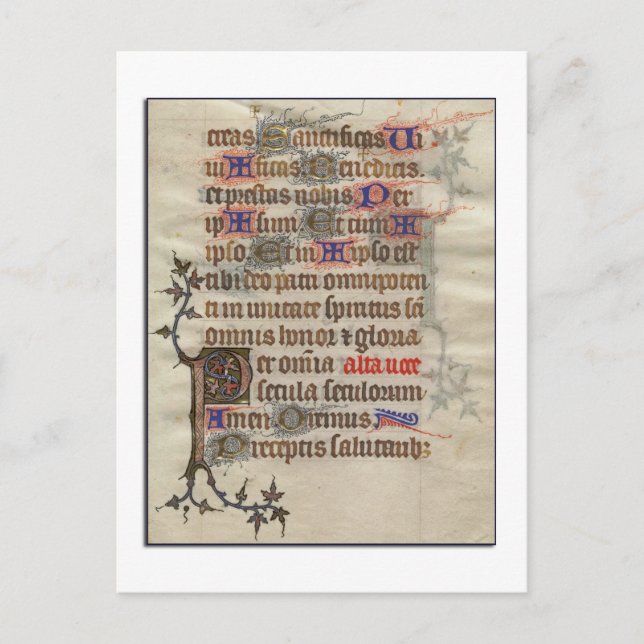 creas Sanctificas Ui
uificas Benedicis.
et prestas nobis Per
ipsum Et cum
ipso Et in ipso est
tibi deo patri omnipoten
ti in unitate spiritus sci
omnis honor ⁊ gloria
Per omnia alta uoce
secula seculorum
Amen Oremus
Preceptis salutarib;